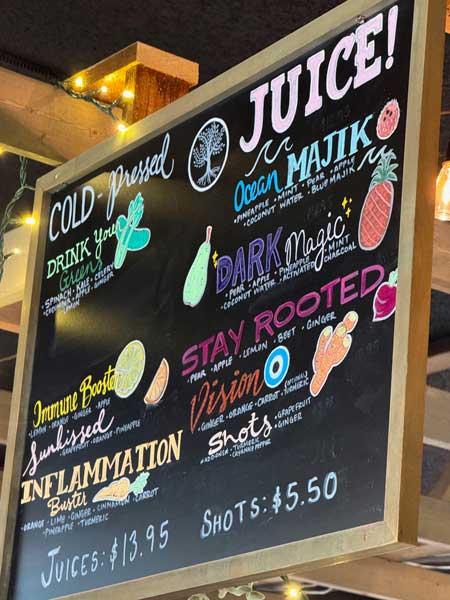 COLD-Pressed
JUICE!
DRINK Your
Greens
SPINACH · KALE · CELERY
APPLE · GINGER
LEMON
Ocean MAJIK
· PINEAPPLE · MINT · PEAR · APPLE
· COCONUT WATER · BLUE MAJIK
DARK Magic
· PEAR · APPLE · PINEAPPLE · MINT
· COCONUT WATER · ACTIVATED CHARCOAL
STAY ROOTED
· PEAR · APPLE · LEMON · BEET · GINGER
Immune Booster
· LEMON · ORANGE · GINGER · APPLE
Vision
(OPTIONAL)
· GINGER · ORANGE · CARROT · TURMERIC
Sunkissed
· GRAPEFRUIT · ORANGE · PINEAPPLE
Shots
· GRAPEFRUIT
· GINGER
· ADD ON · TURMERIC
CAYENNE PEPPER
INFLAMMATION
Buster
· ORANGE · LIME · GINGER · CINNAMON · CARROT
· PINEAPPLE · TURMERIC
JUICES: $13.95
SHOTS: $5.50